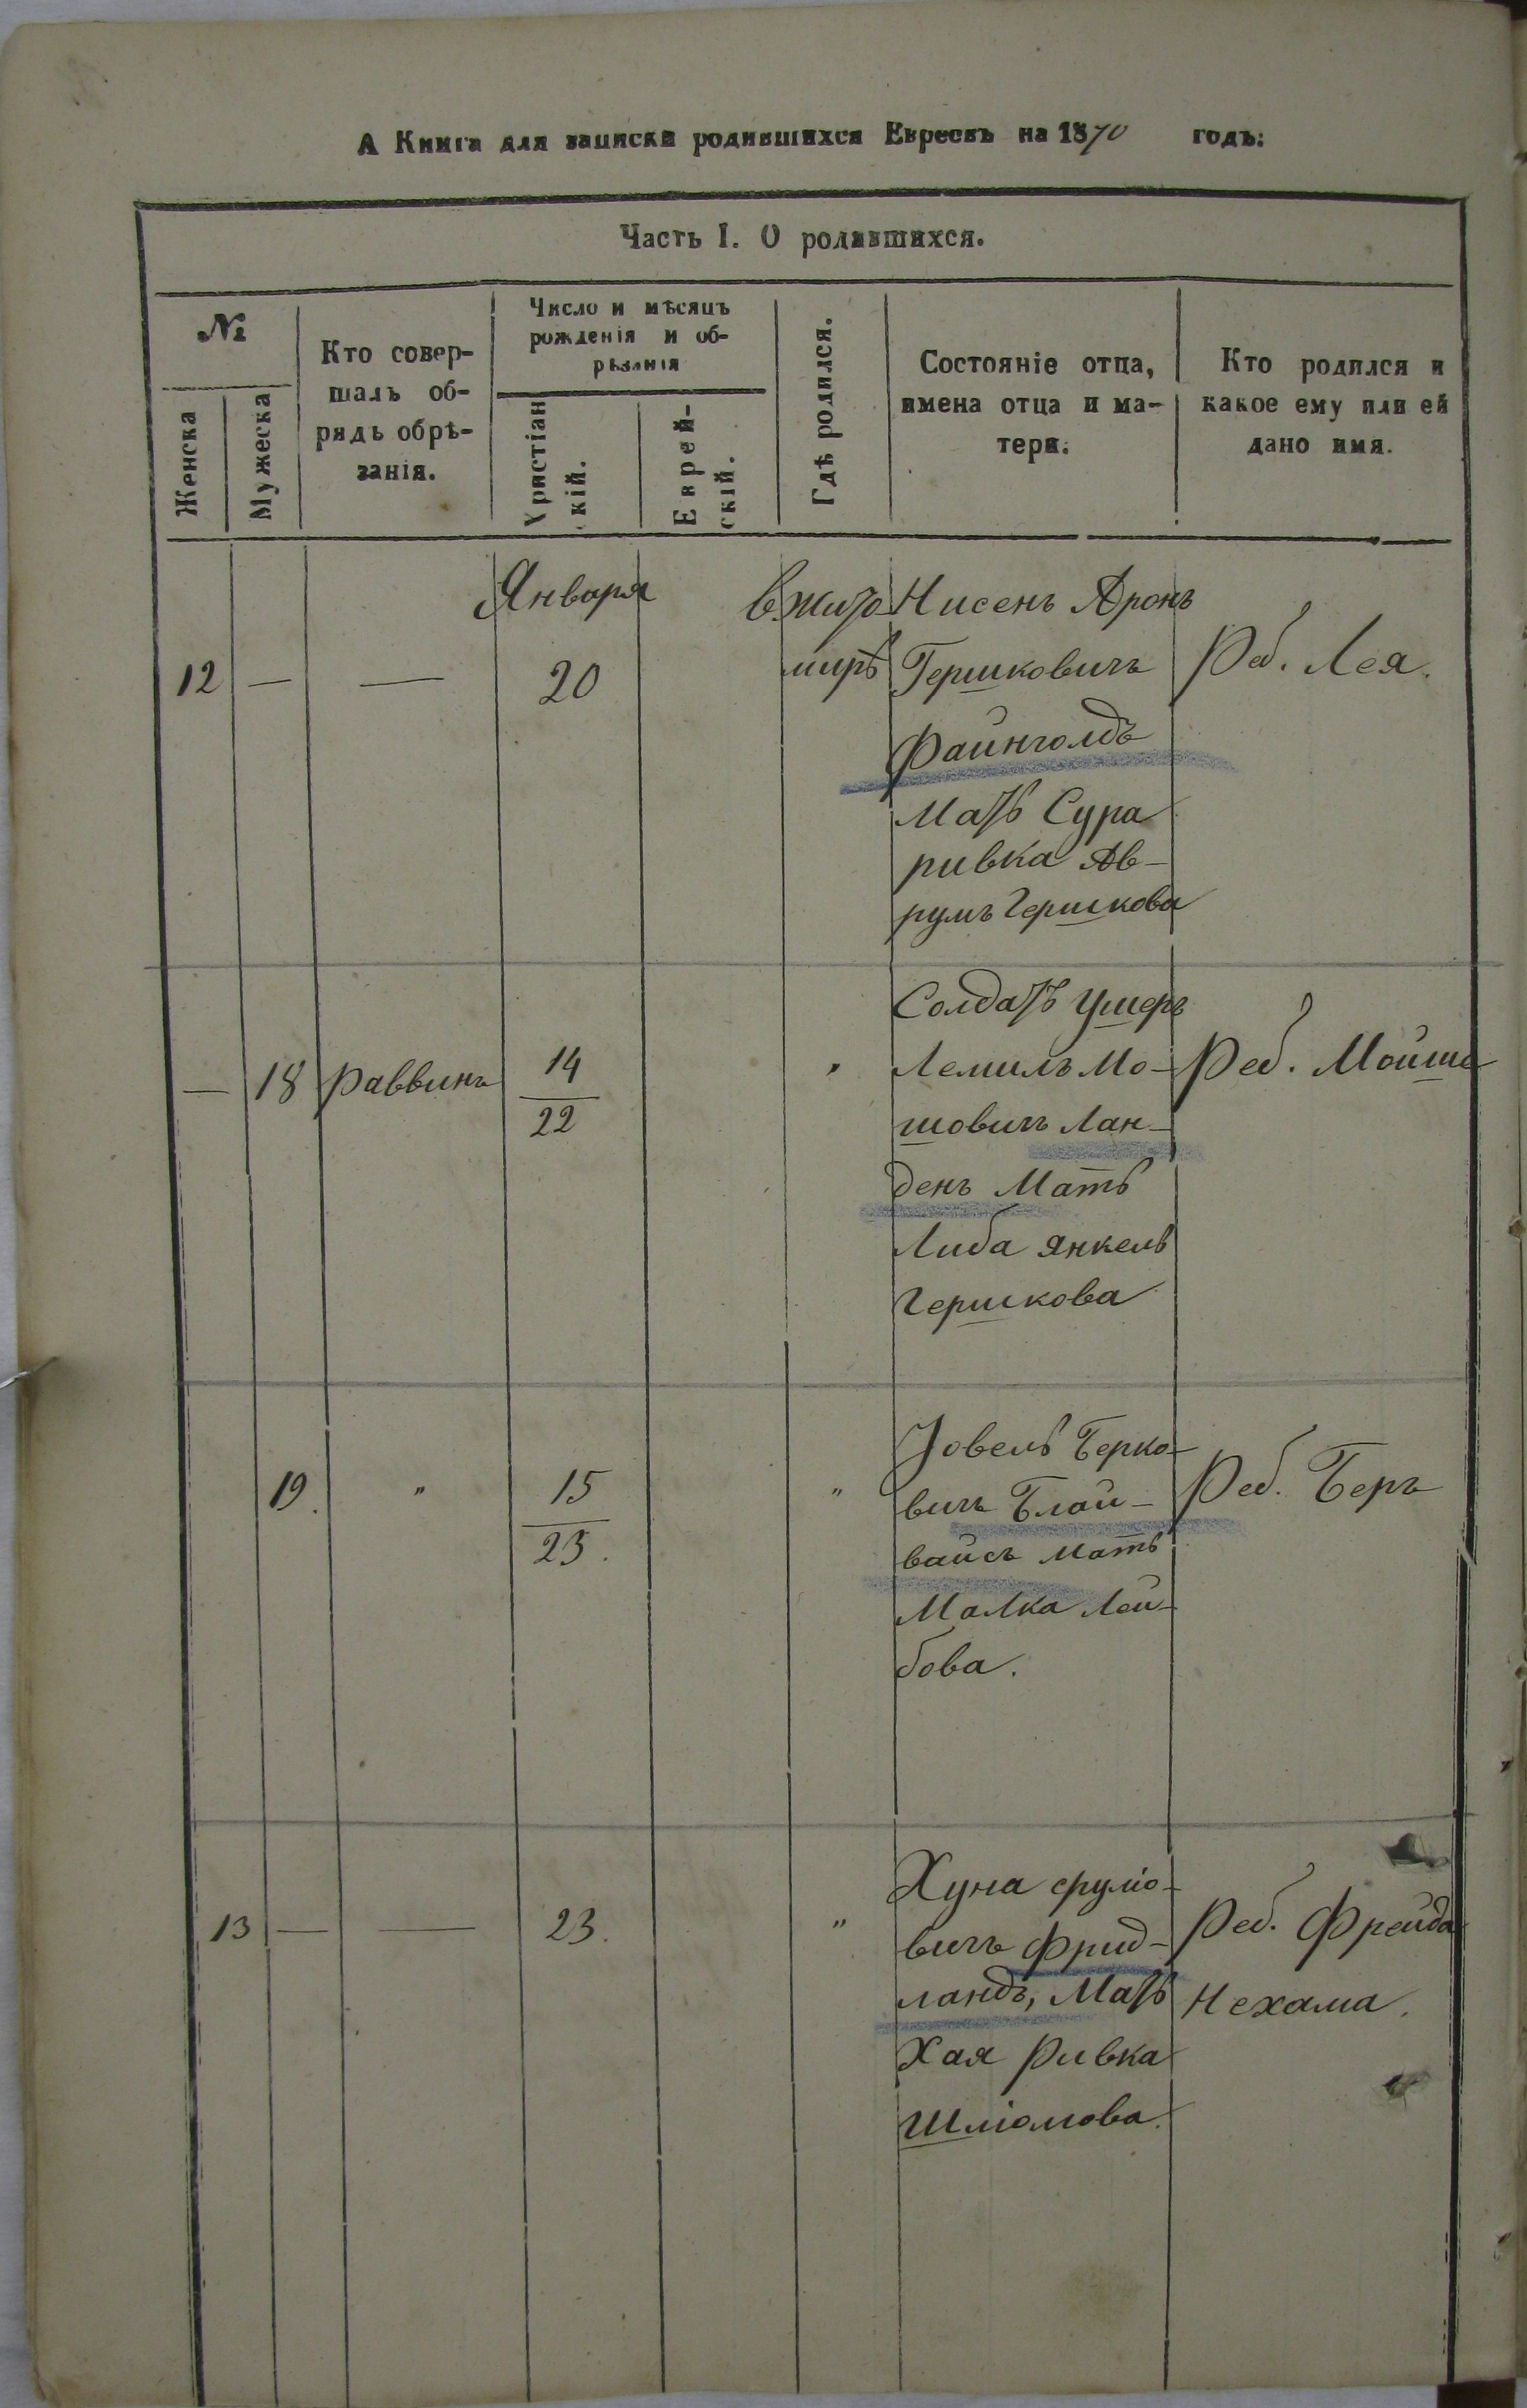 А Книга для записки родившихся Евреевъ на 1870 годъ:
Часть I. О родившихся.
№
Женска
Мужеска
Кто совер-
шалъ об-
рядъ обрѣ-
занія.
Число и мѣсяцъ
рожденія и об-
рѣзанія
Христіан
скій.
Еврей-
скій.
Гдѣ родился.
Состояніе отца,
имена отца и ма-
тери.
Кто родился и
какое ему или ей
дано имя.
12
—
—
Января
20
в Жито
мирѣ
Нисенъ Аронъ
Гершковичъ
Файнголдъ
Мать Сура
ривка Ав-
румъ Гершкова
Реб. Лея.
—
18
Раввинъ
14
22
"
Солдатъ Ушеръ
Лемилъ Мо-
шовичъ Лан-
денъ Мать
Либа Янкель
Гершкова
Реб. Мойше
19.
"
15
23.
"
Іовель Берко-
вичъ Блай-
вайсъ Мать
Малка Лей-
бова.
Реб. Беръ
13
—
—
23.
"
Хуна сруліо-
вичъ Фрид-
ландъ, Мать
Хая Ривка
Шліомова.
Реб. Фрейда
Нехама.